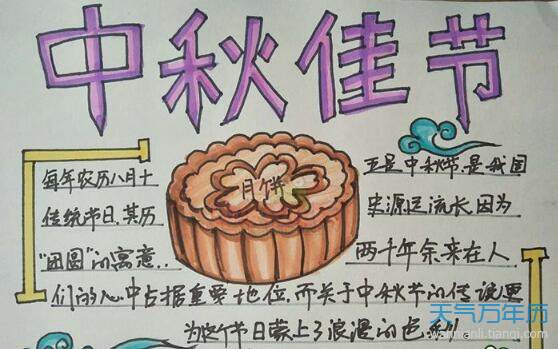 中秋佳节
月饼
每年农历八月十 五是中秋节.是我国
传统节日.其历 史源远流长.因为
"团圆"的寓意. 两千年余来在人
们的心中占据重要地位.而关于中秋节的传说更
为这个节日蒙上了浪漫的色彩.
天气万年历
wannianli.tianqi.com